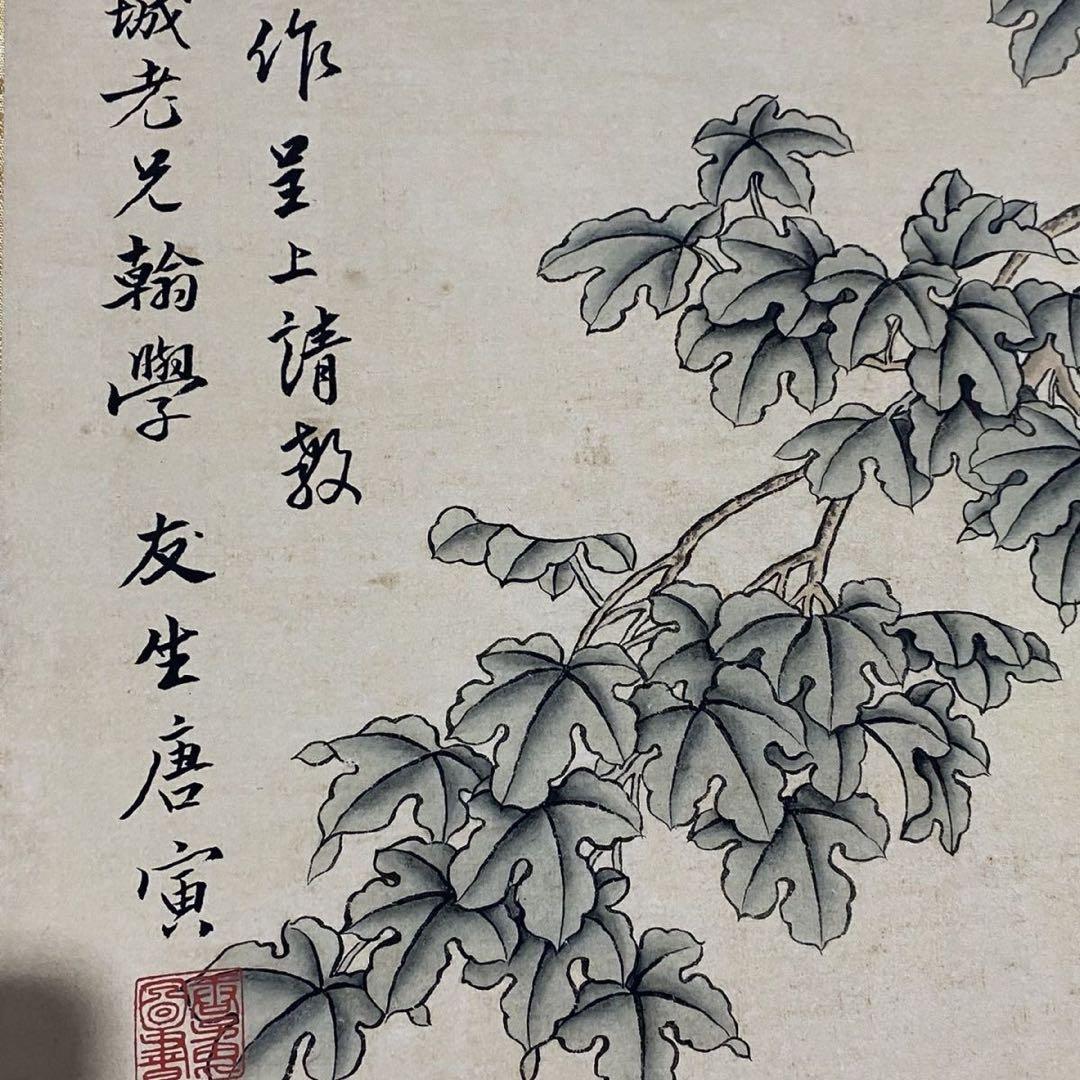 作呈上請教
城老兄翰學 友生唐寅